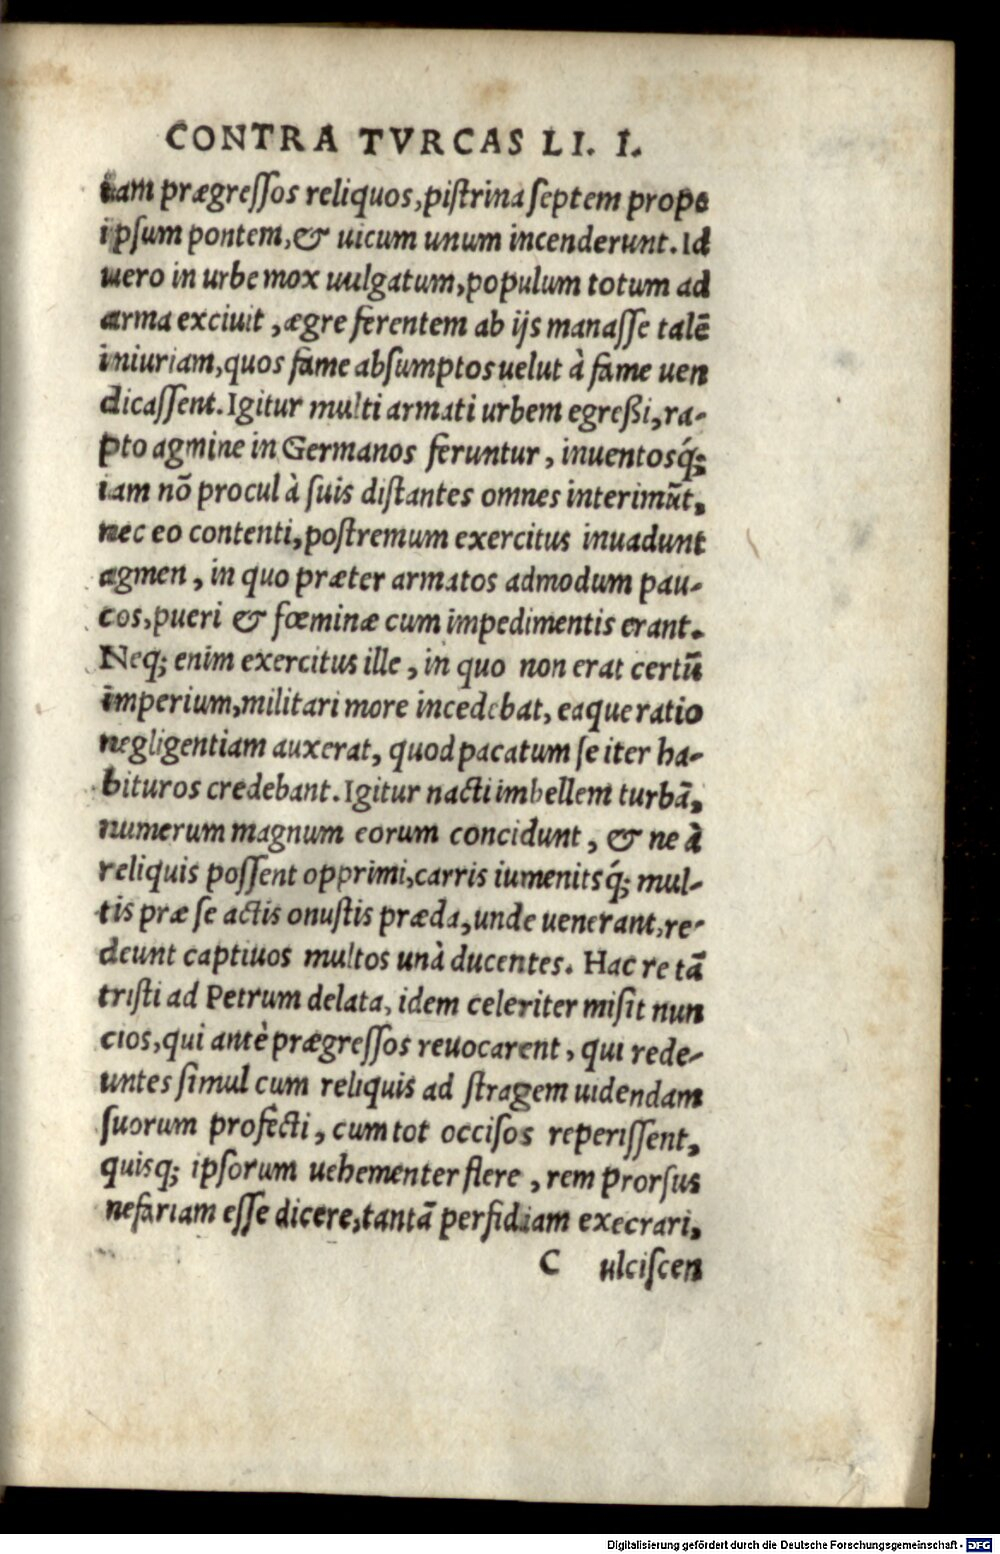 CONTRA TVRCAS LI. I.
iam prægressos reliquos, pistrina septem prope
ipsum pontem, & uicum unum incenderunt. Id
uero in urbe mox uulgatum, populum totum ad
arma exciuit, ægre ferentem ab ijs manasse talē
iniuriam, quos fame absumptos uelut à fame uen
dicassent. Igitur multi armati urbem egreßi, ra-
pto agmine in Germanos feruntur, inuentosq́;
iam nō procul à suis distantes omnes interimūt,
nec eo contenti, postremum exercitus inuadunt
agmen, in quo præter armatos admodum pau-
cos, pueri & fœminæ cum impedimentis erant.
Neq; enim exercitus ille, in quo non erat certū
imperium, militari more incedebat, eaque ratio
negligentiam auxerat, quod pacatum se iter ha-
bituros credebant. Igitur nacti imbellem turbā,
numerum magnum eorum concidunt, & ne à
reliquis possent opprimi, carris iumenitsq́; mul-
tis præ se actis onustis præda, unde uenerant, re-
deunt captiuos multos unà ducentes. Hac re tā
tristi ad Petrum delata, idem celeriter misit nun
cios, qui antè prægressos reuocarent, qui rede-
untes simul cum reliquis ad stragem uidendam
suorum profecti, cum tot occisos reperissent,
quisq; ipsorum uehementer flere, rem prorsus
nefariam esse dicere, tantā perfidiam execrari,
C ulciscen
Digitalisierung gefördert durch die Deutsche Forschungsgemeinschaft - DFG